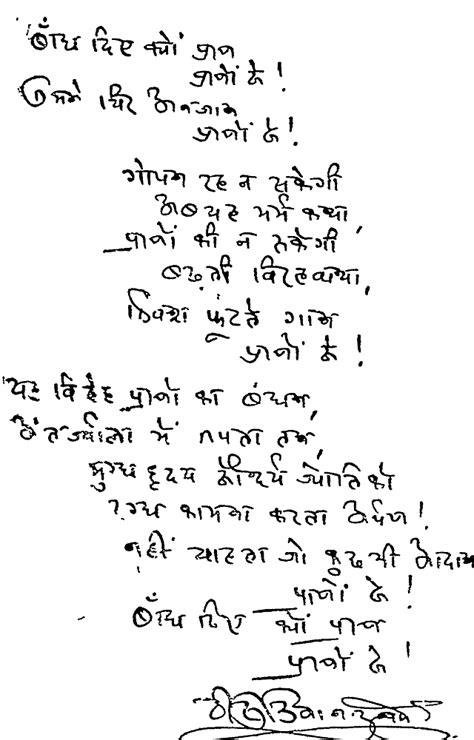 बाँध दिए क्यों प्राण
प्राणों से !
तुमने चिर अनजान
प्राणों से !
गोपन रह न सकेगी
अब यह मर्म कथा,
प्राणों की न रुकेगी
बढ़ती विरह व्यथा,
विवश फूटते गान
प्राणों से !
यह विदेह प्राणों का बंधन,
अंतर्ज्वाला में तपता तन,
मुग्ध हृदय सौन्दर्य ज्योति को
दग्ध कामना करता अर्पण !
नहीं चाहता जो कुछ भी आदान
प्राणों से !
बाँध दिए क्यों प्राण
प्राणों से !